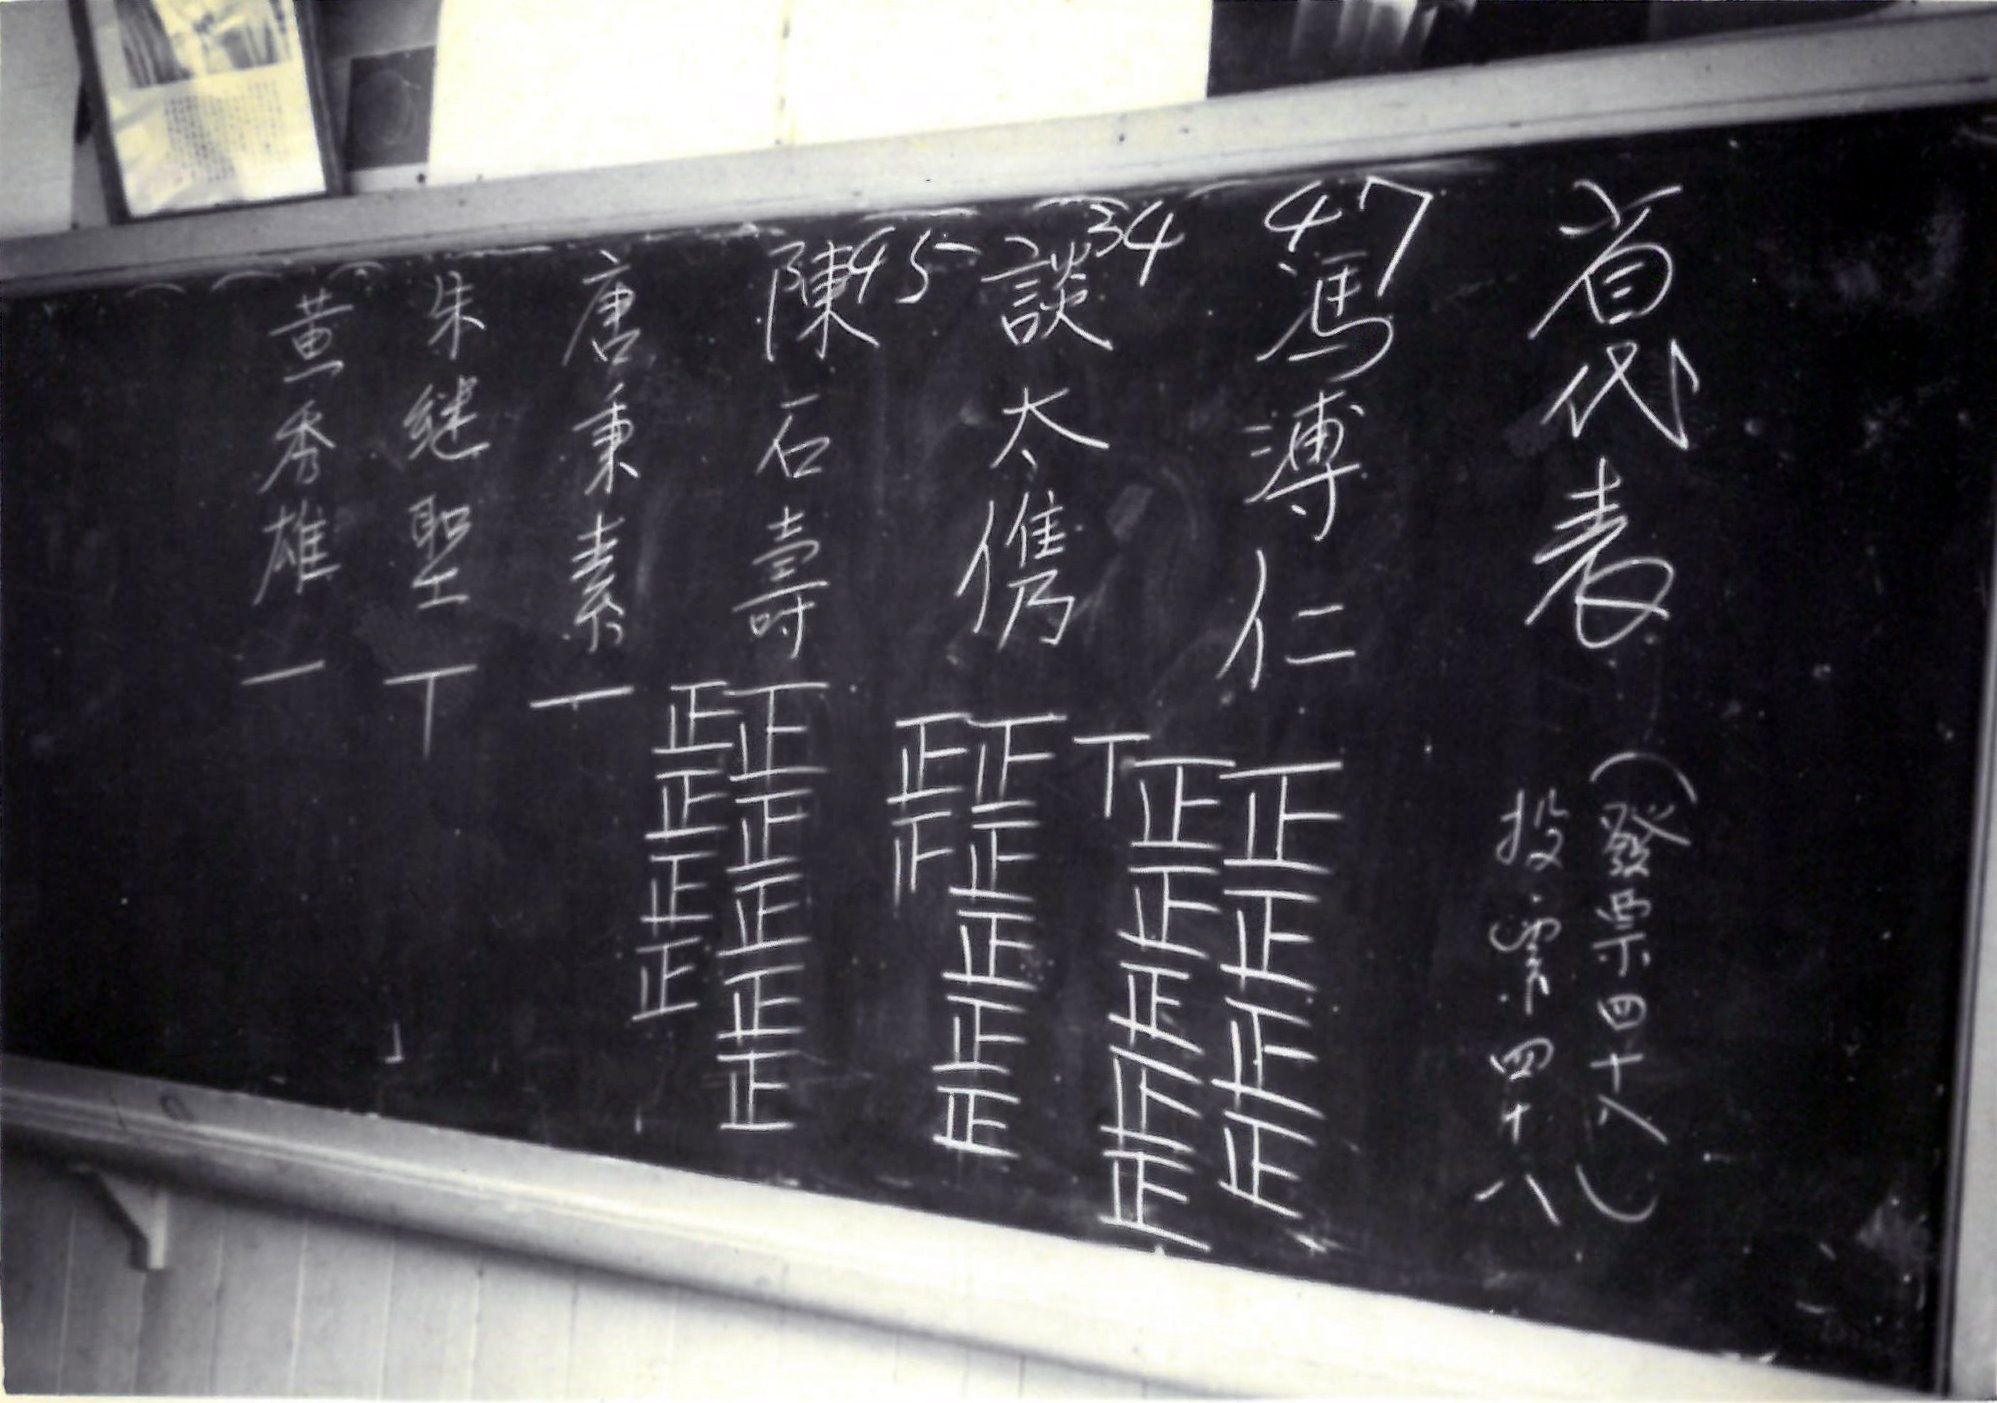 省代表
(發票四十八)
投票四十八
47
馮溥仁 正正正正
正正正正正
丅
34
談太儁 正正正正正
正
45
陳石壽 正正正正正
正正正正
唐秉素 一
朱継聖 丅
黄秀雄 一